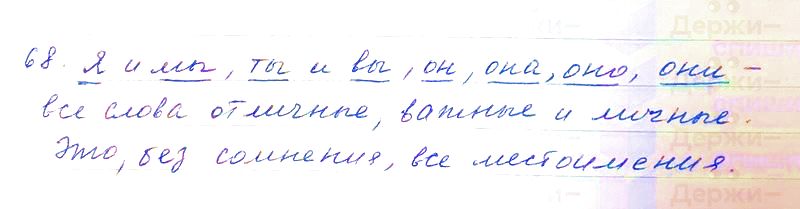 68. Я и мы, ты и вы, он, она, оно, они –
все слова отличные, важные и личные.
Это, без сомнения, все местоимения.